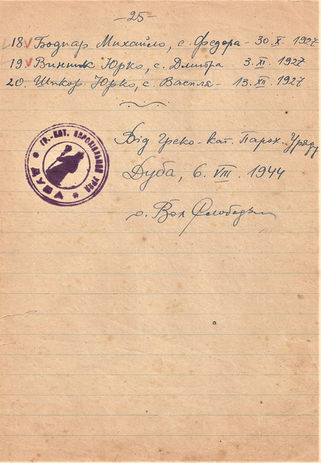 - 25 -
18 Боднар Михайло, с. Федора - 30. X. 1927
19 Винник Юрко, с. Дмитра 3. XI. 1927
20. Шикор Юрко, с. Василя - 13. XII. 1927
Від Греко-кат. Парох. Уряду
Дуба, 6. VIII. 1944
о. Вол
ГР. КАТ. ПАРОХІЯЛЬНИЙ УРЯД
ДУБА